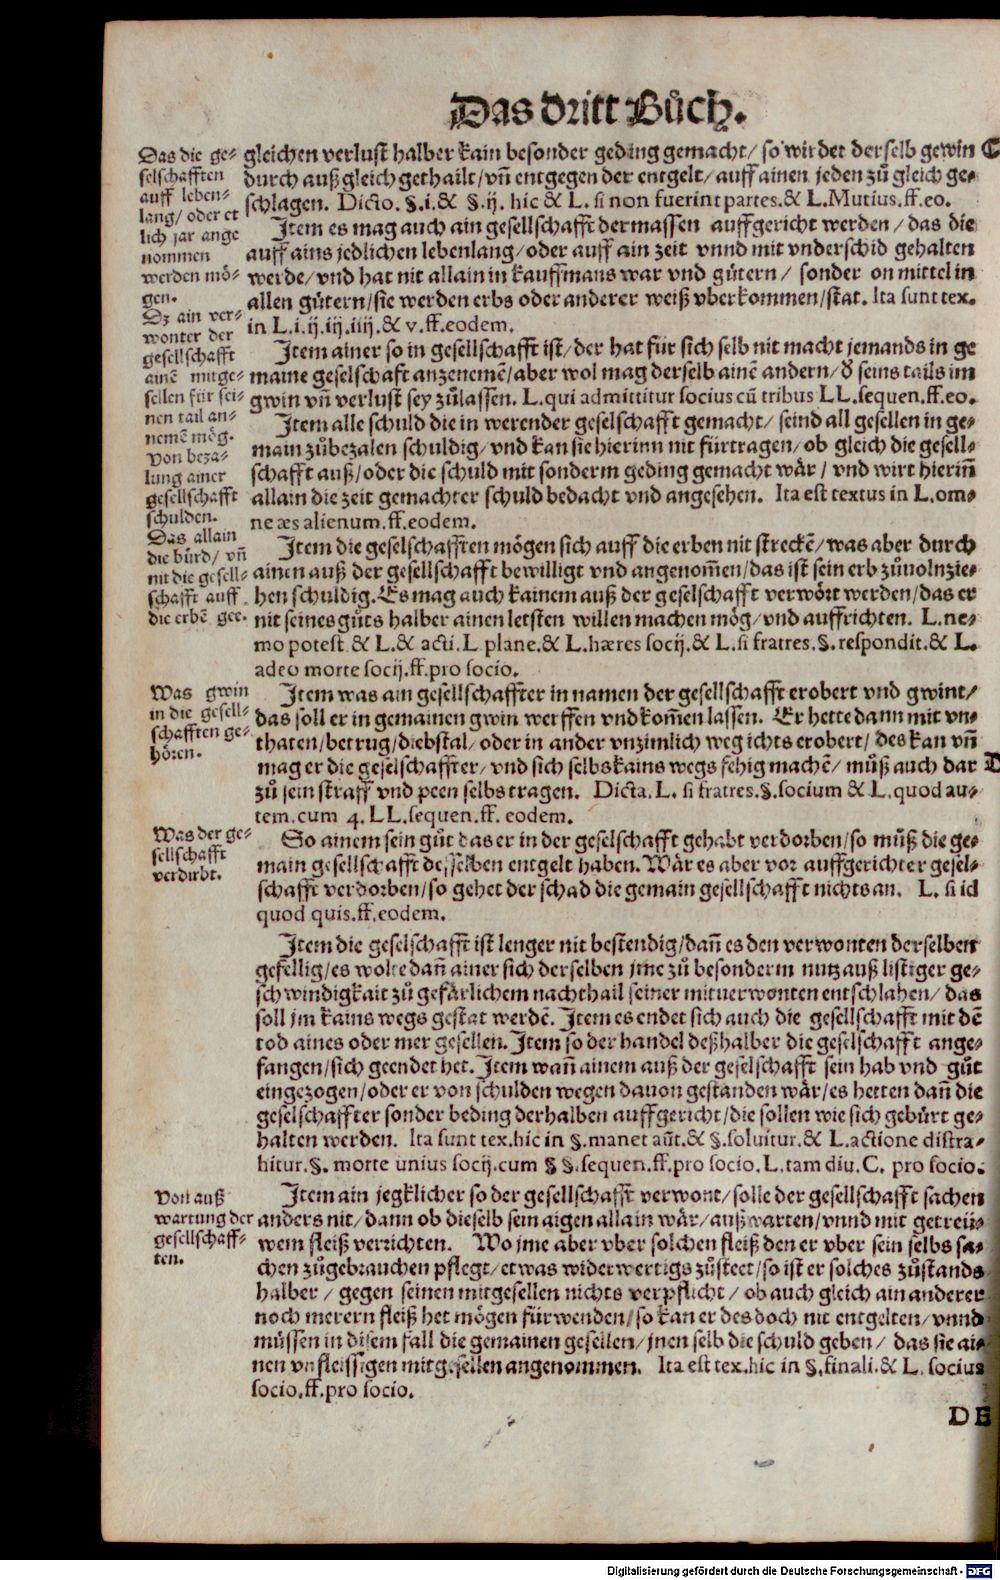 Das dritt Bůch.
Das die ge-
selschafften
auff leben-
lang/ oder et
lich jar ange
nommen
werden mö-
gen.
gleichen verlust halber kain besonder geding gemacht/ so wirdet derselb gewin
durch auß gleich gethailt/ vñ entgegen der entgelt/ auff ainen jeden zů gleich ge-
schlagen. Dicto. §.i.& §.ij. hic & L. si non fuerint partes.& L.Mutius.ff.eo.
Item es mag auch ain gesellschafft dermassen auffgericht werden/ das die
auff ains jedlichen lebenlang/ oder auff ain zeit vnnd mit vnderschid gehalten
werde/ vnd hat nit allain in kauffmans war vnd gütern/ sonder on mittel in
allen gütern/ sie werden erbs oder anderer weiß vberkommen/ stat. Ita sunt tex.
in L.i.ij.iij.iiij.& v.ff.eodem.
Dz ain ver-
wonter der
gesellschafft
ainē mitge-
sellen für sei-
nen tail an-
nemē mög.
Item ainer so in gesellschafft ist/ der hat für sich selb nit macht jemands in ge
maine geselschaft anzenemē/ aber wol mag derselb ainē andern/ d̄ seins tails im
gwin vñ verlust sey zůlassen. L.qui admittitur socius cū tribus LL.sequen.ff.eo.
Von beza-
lung ainer
gesellschafft
schulden.
Item alle schuld die in werender geselschafft gemacht/ seind all gesellen in ge-
main zůbezalen schuldig/ vnd kan sie hierinn nit fürtragen/ ob gleich die gesell-
schafft auß/ oder die schuld mit sonderm geding gemacht wär/ vnd wirt hieriñ
allain die zeit gemachter schuld bedacht vnd angesehen. Ita est textus in L.om-
ne æs alienum.ff.eodem.
Das allain
die bürd/ vñ
nit die gesell-
schafft auff
die erbē gee.
Item die geselschafften mögen sich auff die erben nit streckē/ was aber durch
ainen auß der gesellschafft bewilligt vnd angenom̄en/ das ist sein erb zůuolnzie-
hen schuldig. Es mag auch kainem auß der geselschafft verwört werden/ das er
nit seines gůts halber ainen letsten willen machen mög/ vnd auffrichten. L.ne-
mo potest & L.& acti.L plane.& L.hæres socij.& L.si fratres.§.respondit.& L.
adeo morte socij.ff.pro socio.
Was gwin
in die gesell-
schafften ge-
hören.
Item was ain gesellschaffter in namen der gesellschafft erobert vnd gwint/
das soll er in gemainen gwin werffen vnd kom̄en lassen. Er hette dann mit vn-
thaten/ betrug/ diebstal/ oder in ander vnzimlich weg ichts erobert/ des kan vñ
mag er die geselschaffter/ vnd sich selbs kains wegs fehig machē/ můß auch dar
zů sein straff vnd peen selbs tragen. Dicta.L. si fratres.§.socium & L.quod au-
tem.cum 4. LL.sequen.ff. eodem.
Was der ge-
sellschafft
verdirbt.
So ainem sein gůt das er in der geselschafft gehabt verdorben/ so můß die ge-
main gesellschafft desselben entgelt haben. Wär es aber vor auffgerichter gesel-
schafft verdorben/ so gehet der schad die gemain gesellschafft nichts an. L. si id
quod quis.ff.eodem.
Item die geselschafft ist lenger nit bestendig/ dañ es den verwonten derselben
gefellig/ es wolte dañ ainer sich derselben jme zů besonderm nutz auß listiger ge-
schwindigkait zů gefärlichem nachthail seiner mituerwonten entschlahen/ das
soll jm kains wegs gestat werdē. Item es endet sich auch die gesellschafft mit dē
tod aines oder mer gesellen. Item so der handel deßhalber die gesellschafft ange-
fangen/ sich geendet het. Item wañ ainem auß der geselschafft sein hab vnd gůt
eingezogen/ oder er von schulden wegen dauon gestanden wär/ es hetten dañ die
geselschaffter sonder beding derhalben auffgericht/ die sollen wie sich gebürt ge-
halten werden. Ita sunt tex.hic in §.manet aūt.& §.soluitur.& L.actione distra-
hitur.§. morte unius socij.cum §§.sequen.ff.pro socio.L.tam diu.C. pro socio.
Von auß
wartung der
gesellschaff-
ten.
Item ain jegklicher so der gesellschafft verwont/ solle der gesellschafft sachen
anders nit/ dann ob dieselb sein aigen allain wär/ außwarten/ vnnd mit getreü-
wem fleiß verrichten. Wo jme aber vber solchen fleiß den er vber sein selbs sa-
chen zůgebrauchen pflegt/ etwas widerwertigs zůsteet/ so ist er solches zůstands
halber/ gegen seinen mitgesellen nichts verpflicht/ ob auch gleich ain anderer
noch merern fleiß het mögen fürwenden/ so kan er des doch nit entgelten/ vnnd
müssen in disem fall die gemainen gesellen/ jnen selb die schuld geben/ das sie ai-
nen vnfleissigen mitgesellen angenommen. Ita est tex.hic in §.finali.& L. socius
socio.ff.pro socio.
DE
Digitalisierung gefördert durch die Deutsche Forschungsgemeinschaft - DFG